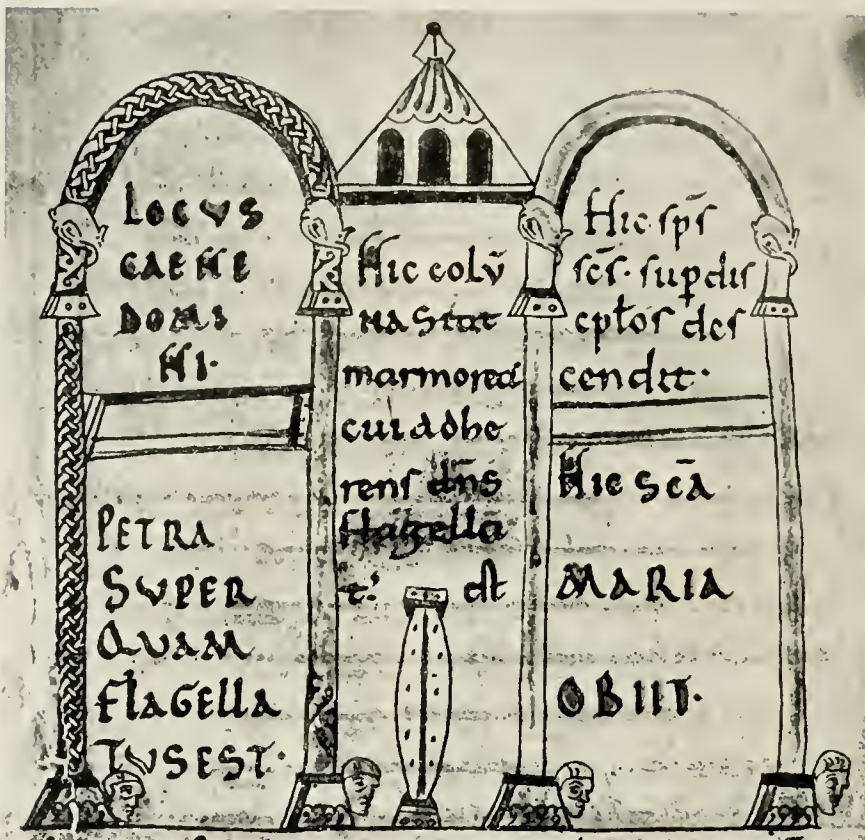 LOCUS
CAENE
DOMI
NI·
PETRA
SUPER
QUAM
FLAGELLA
TUS EST·
Hic colū
na stat
marmorea
cui adhe
rens dn̄s
flagella
t: est
Hic sp̄s
sc̄s· sup̱ dis
cipłos des
cendit·
Hic sc̄a
MARIA
OBIIT·